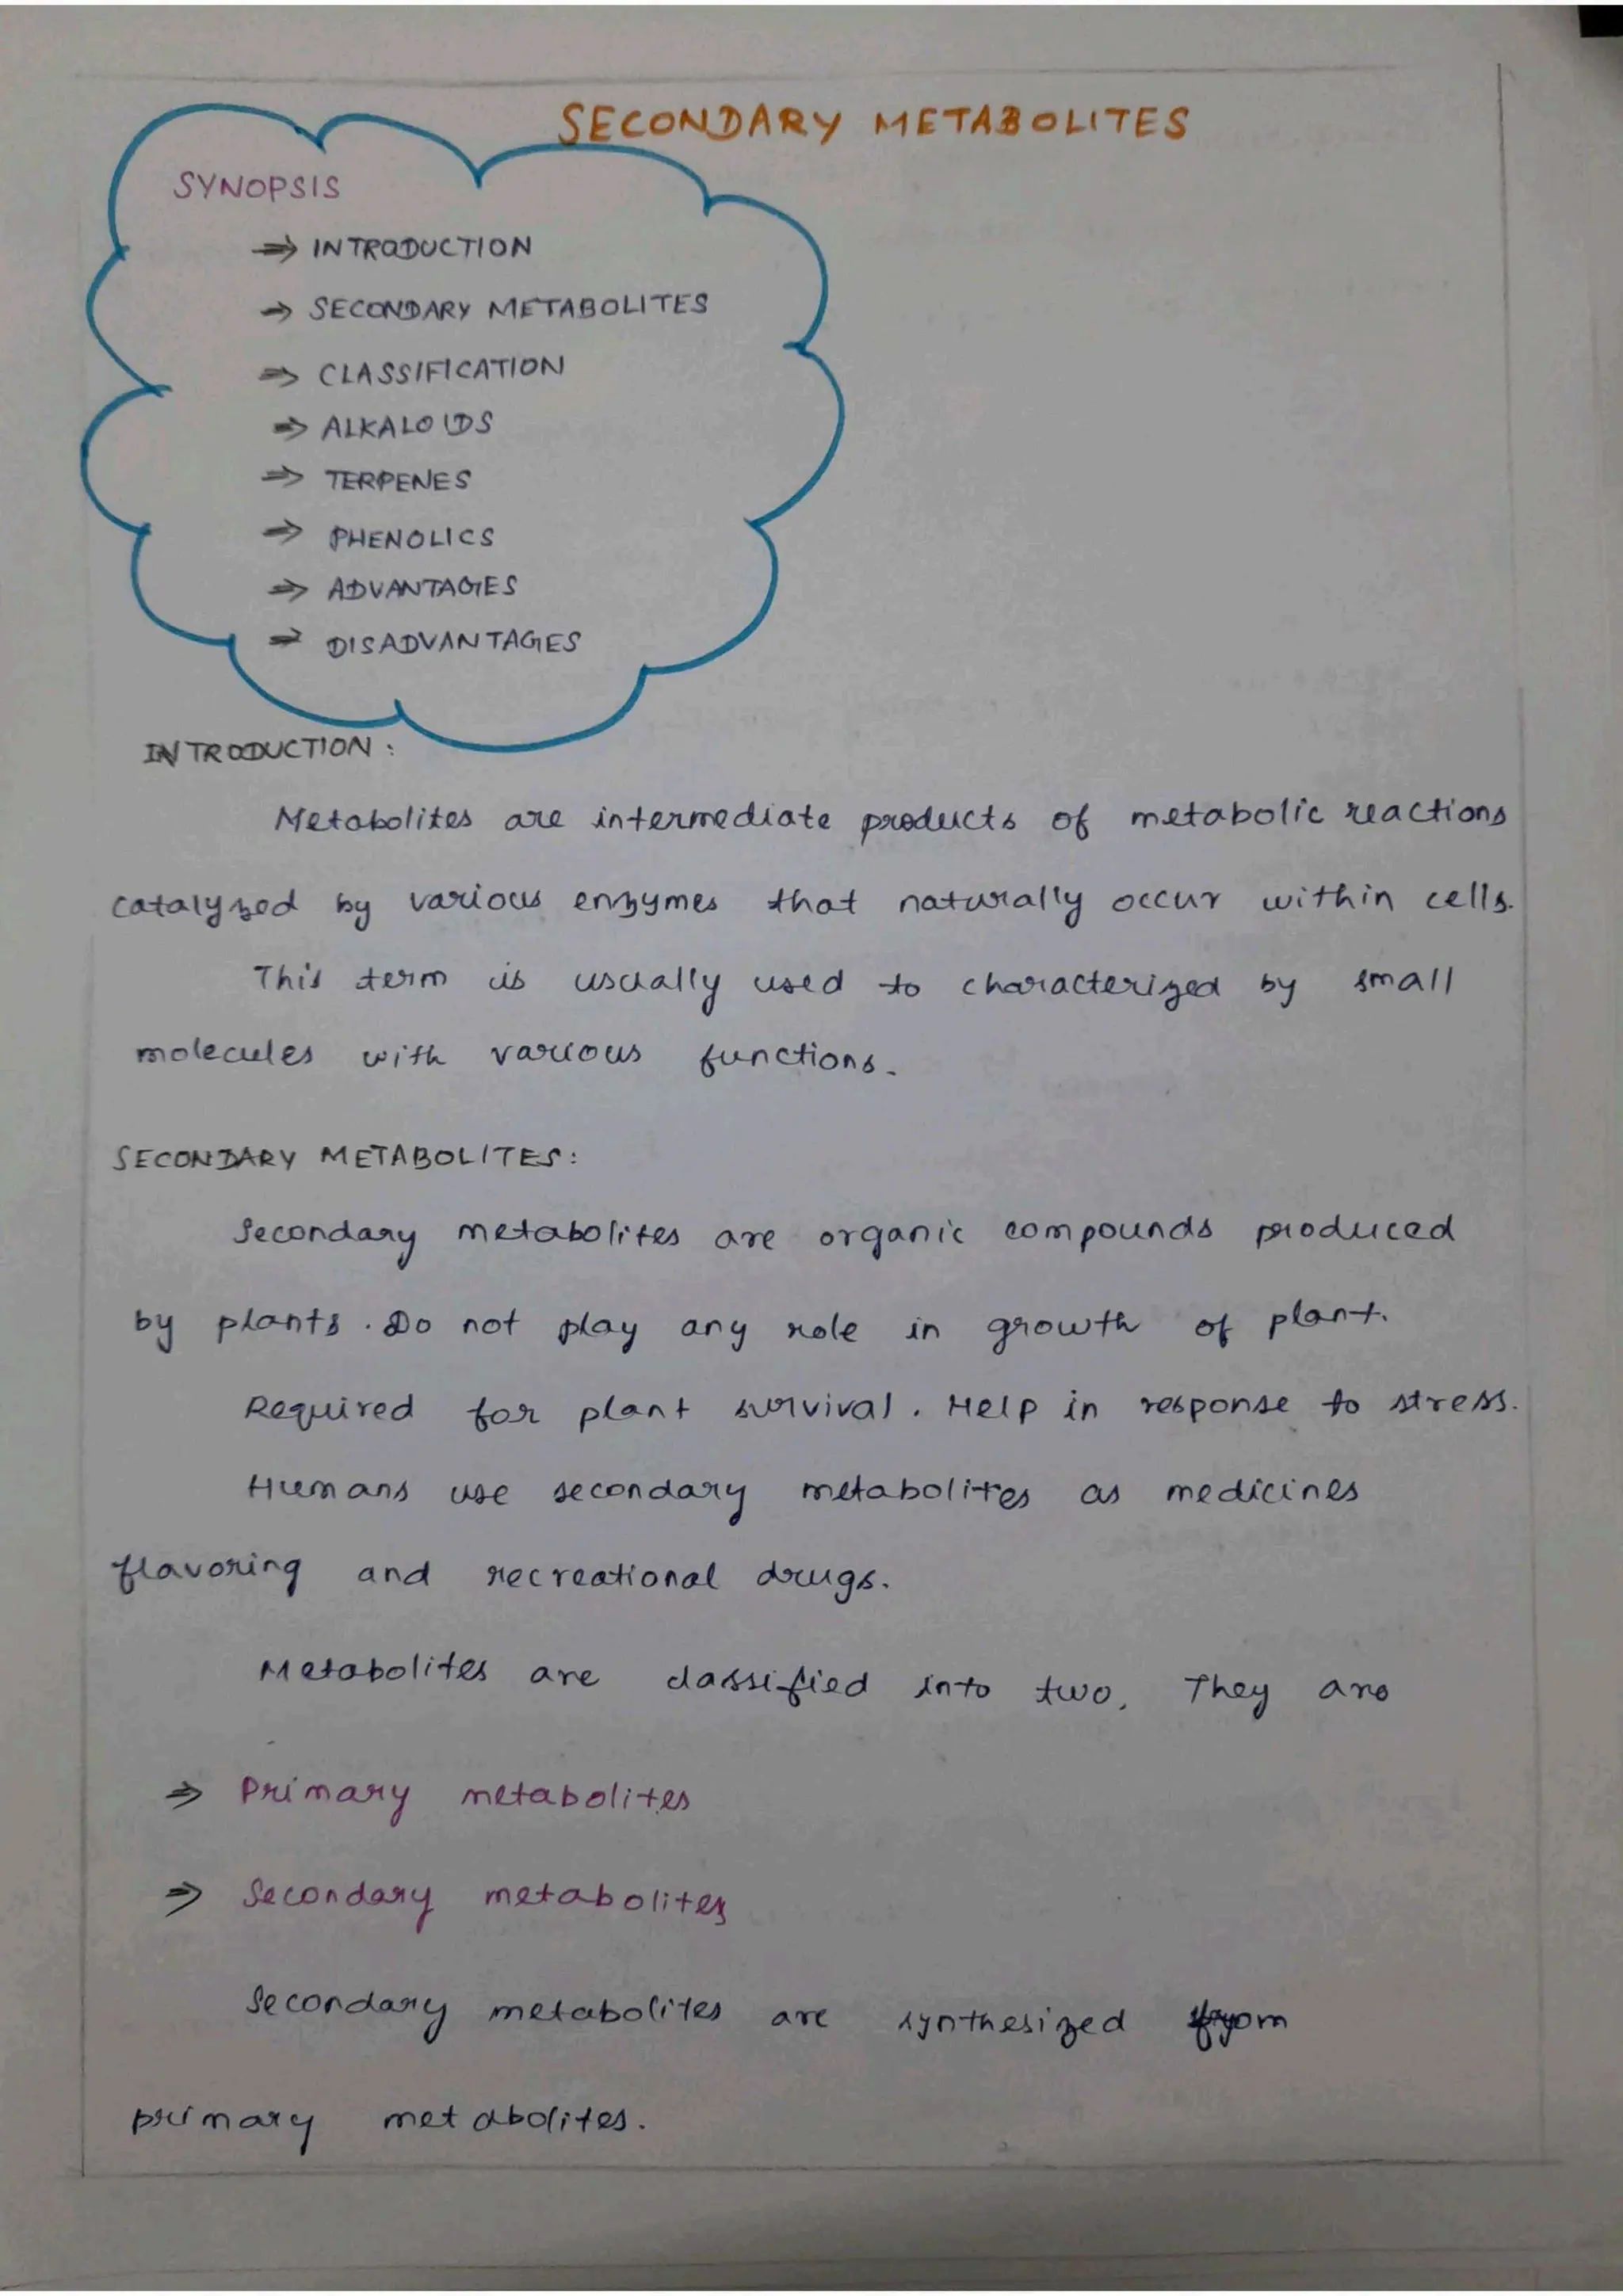 SECONDARY METABOLITES
SYNOPSIS
⇒ INTRODUCTION
⇒ SECONDARY METABOLITES
⇒ CLASSIFICATION
⇒ ALKALOIDS
⇒ TERPENES
⇒ PHENOLICS
⇒ ADVANTAGES
⇒ DISADVANTAGES
INTRODUCTION :
Metabolites are intermediate products of metabolic reactions
catalyzed by various enzymes that naturally occur within cells.
This term is usually used to characterized by small
molecules with various functions.
SECONDARY METABOLITES:
Secondary metabolites are organic compounds produced
by plants. Do not play any role in growth of plant.
Required for plant survival. Help in response to stress.
Humans use secondary metabolites as medicines
flavoring and recreational drugs.
Metabolites are classified into two. They are
⇒ Primary metabolites
⇒ Secondary metabolites
Secondary metabolites are synthesized from
primary metabolites.